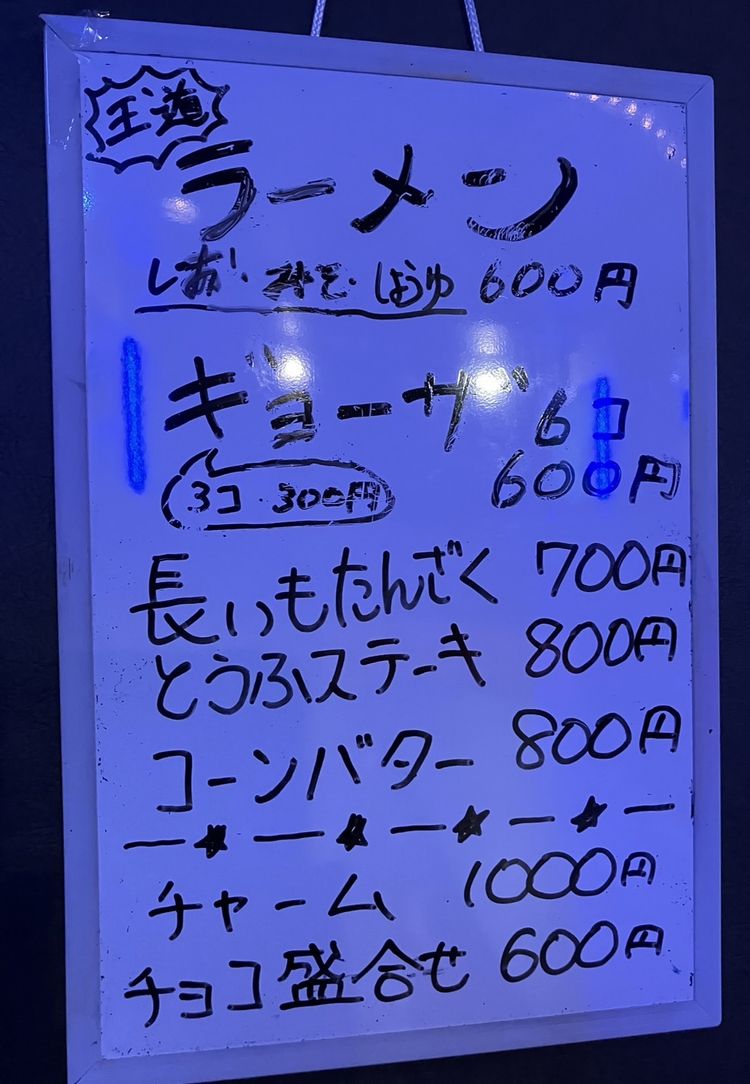 王道
ラーメン
しお・みそ・しょうゆ 600円
ギョーザ 6コ
600円
3コ・300円
長いもたんざく 700円
とうふステーキ 800円
コーンバター 800円
ー★ー★ー★ー★ー
チャーム 1000円
チョコ盛合せ 600円